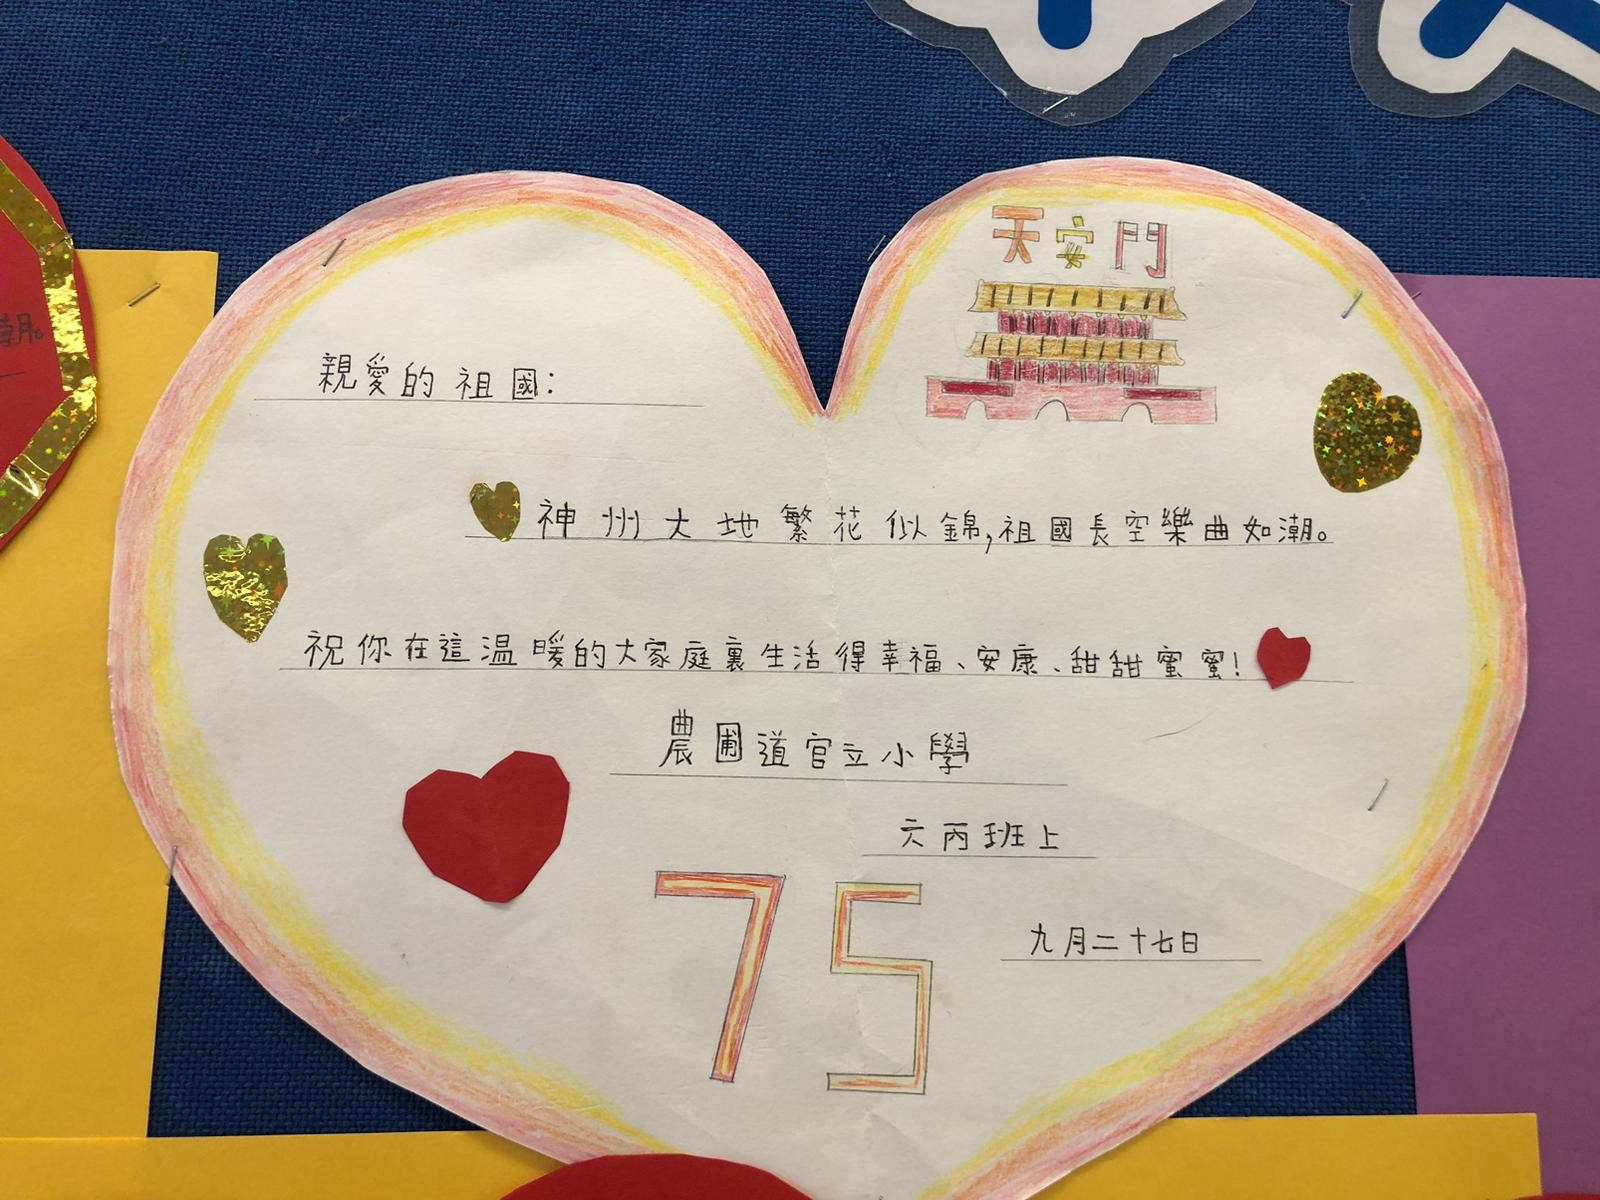 天安門
親愛的祖國：
神州大地繁花似錦,祖國長空樂曲如潮。
祝你在這溫暖的大家庭裏生活得幸福、安康、甜甜蜜蜜！
農圃道官立小學
六丙班上
75
九月二十七日
潮。